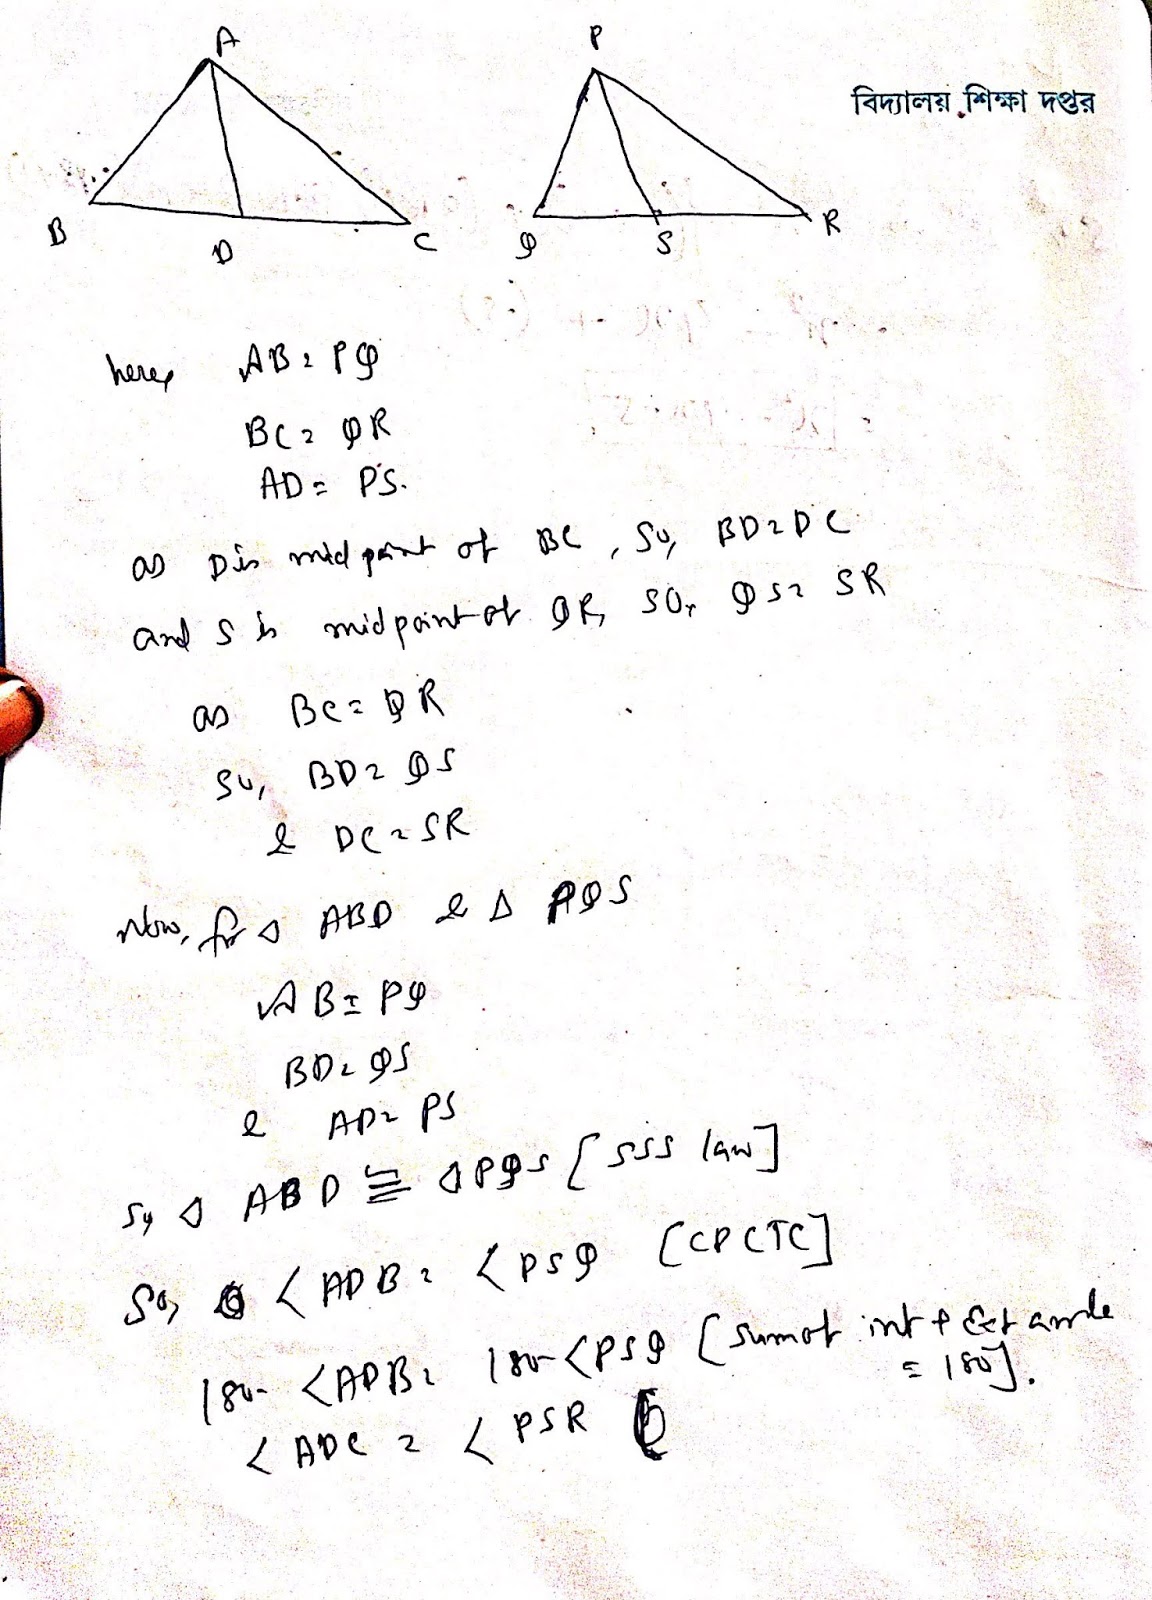 A
P
বিদ্যালয় শিক্ষা দপ্তর
B
D
C
Q
S
R
here, AB = PQ
BC = QR
AD = PS.
as D is mid point of BC, So, BD = DC
and S is midpoint of QR, SO, QS = SR
as BC = QR
So, BD = QS
& DC = SR
Now, for Δ ABD & Δ PQS
AB = PQ
BD = QS
& AD = PS
So, Δ ABD ≅ Δ PQS [SSS law]
So, < ADB = < PSQ [CPCTC]
180 - <ADB = 180 - <PSQ [sum of int + Ext angle
= 180].
< ADC = < PSR